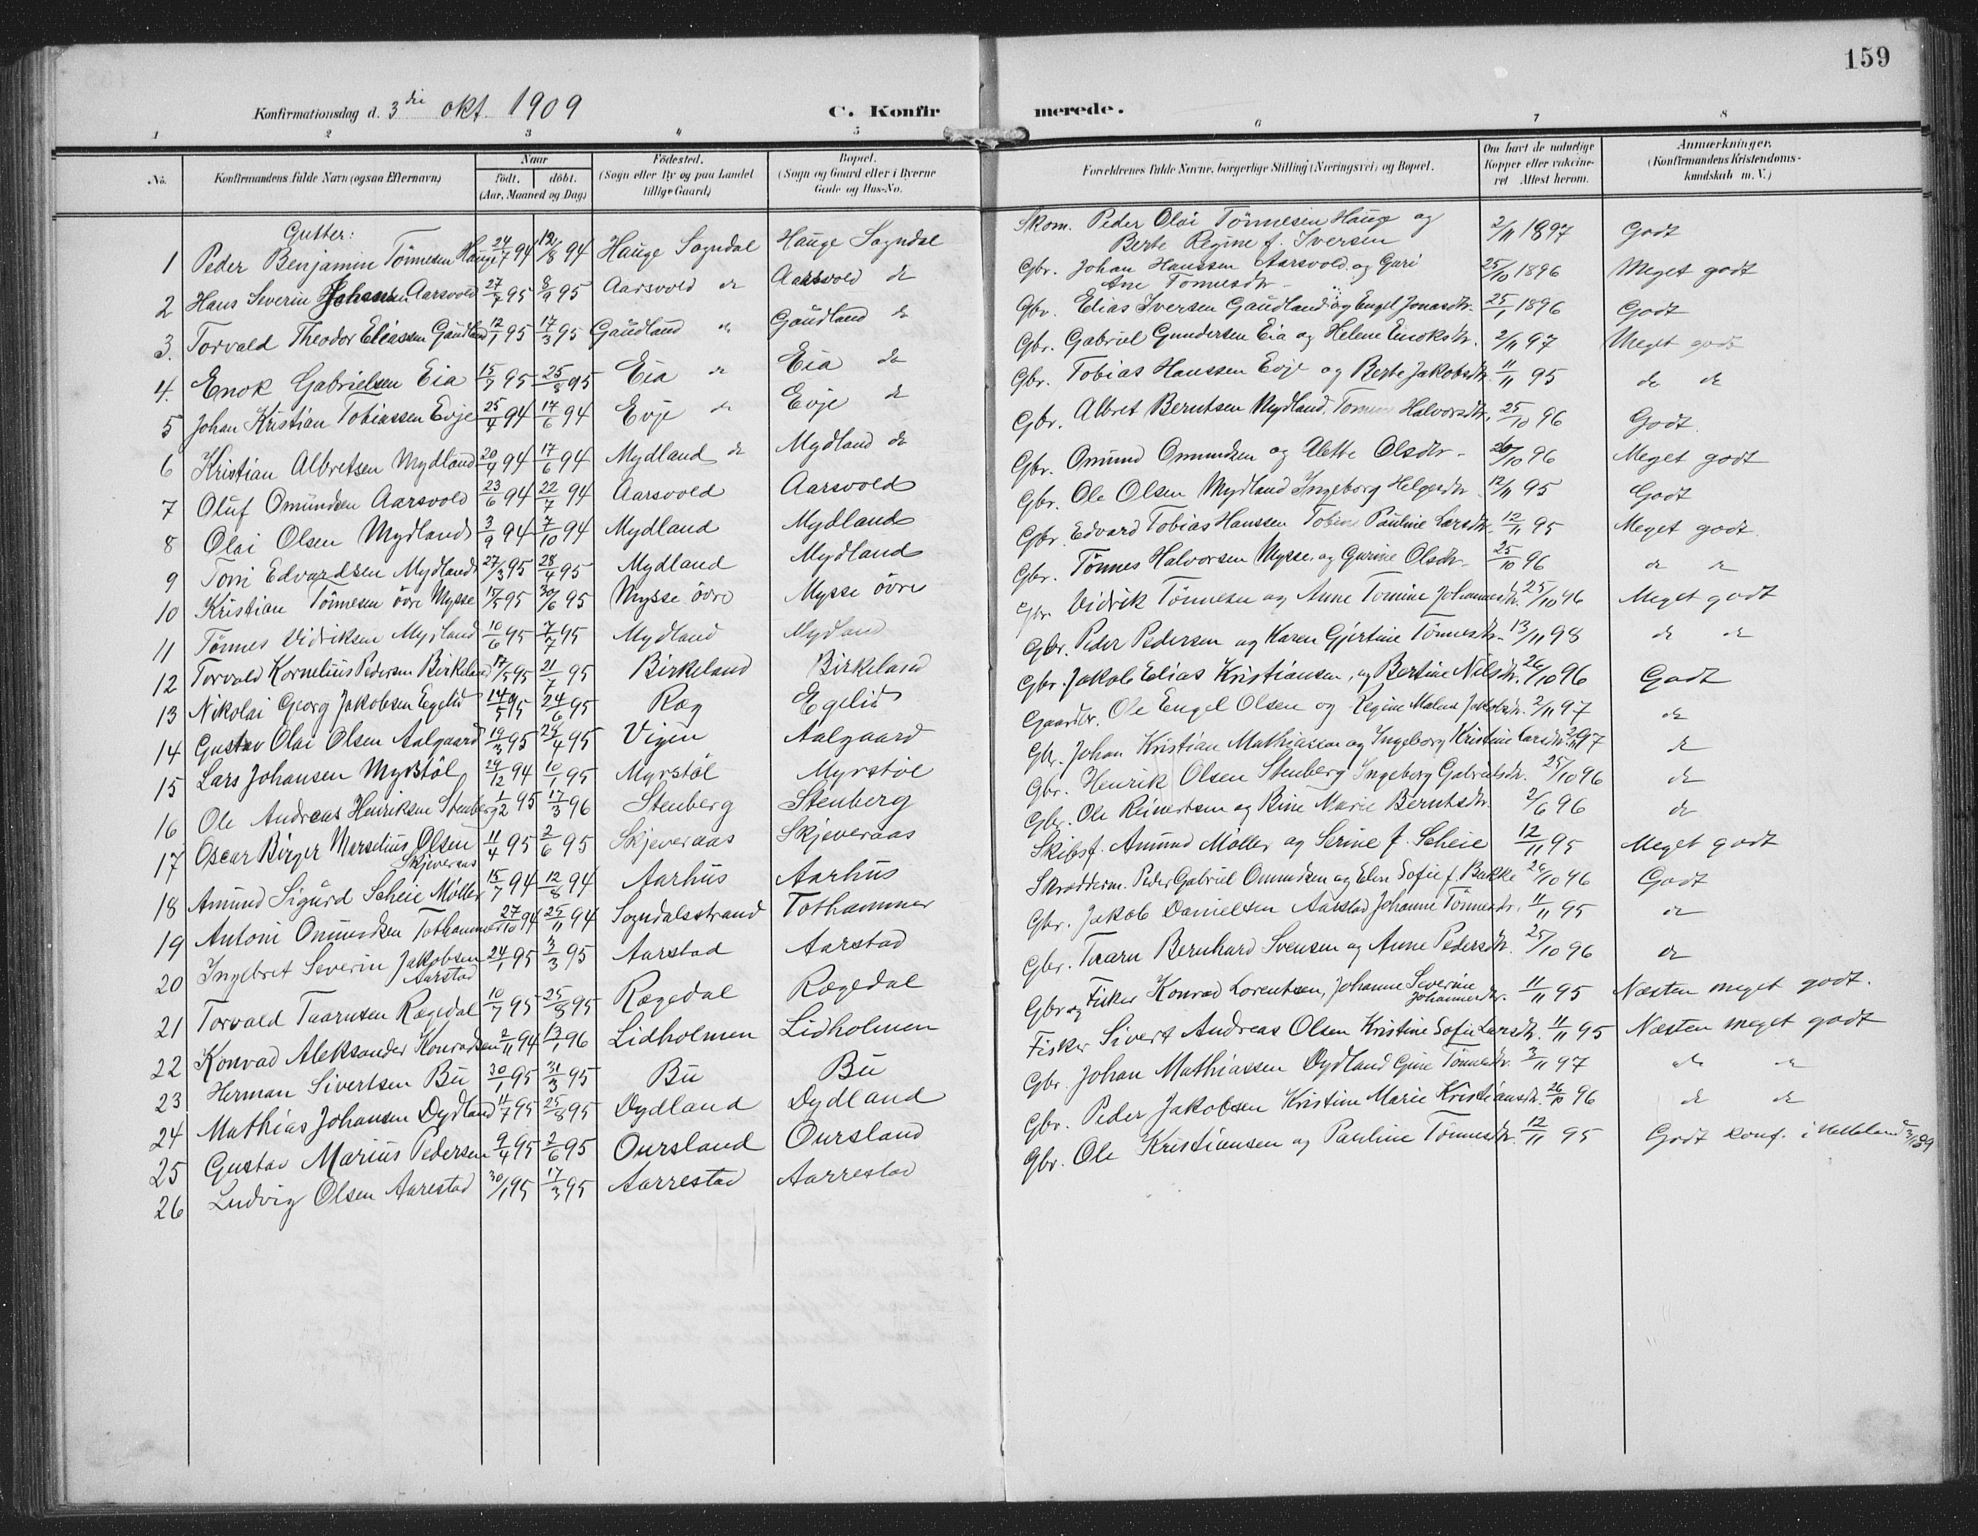 159
Konfirmationsdag d. 3die okt. 1909 C. Konfirmerede.
1 2 3 4 5 6 7 8
No. Konfirmandens fulde Navn (ogsaa Efternavn) Naar født. døbt. (Aar, Maaned og Dag) Fødested. (Sogn eller By og paa Landet tillige Gaard) Bopæl. (Sogn og Gaard eller i Byerne Gade og Hus-No. Forældrenes fulde Navne, borgerlige Stilling (Næringsvei) og Bopæl. Om havt de naturlige Kopper eller vakcineret Attest herom. Anmærkninger. (Konfirmandens Kristendomskundskab m. V.)
Gutter:
1 Peder Benjamin Tönnesen Haug 24/7 94 12/8 94 Hauge Sogndal Hauge Sogndal Skom. Peder Olai Tönnesen Haug og Berte Regine f. Iversen 2/11 1897 Godt
2 Hans Severin Johansen Aarsvold 27/7 95 8/9 95 Aarsvold do Aarsvold do Gbr. Johan Hanssen Aarsvold og Guri Ane Tönnesdtr. 25/10 1896 Meget godt
3. Torvald Theodor Eliassen Gaudland 12/1 95 17/3 95 Gaudland do Gaudland do Gbr. Elias Iversen Gaudland og Engel Jonasdtr. 25/1 1896 Godt
4. Enok Gabrielsen Eia 15/7 95 25/8 95 Eia do Eia do Gbr. Gabriel Gundersen Eia og Helene Enoksdtr. 2/11 97 Meget godt
5 Johan Kristian Tobiassen Evje 25/4 94 17/6 94 Evje do Evje do Gbr. Tobias Hanssen Evje og Berte Jakobsdtr. 11/11 95 do do
6 Kristian Albretsen Mydland 20/4 94 17/6 94 Mydland do Mydland do Gbr. Albret Berntsen Mydland, Halvorsdtr. 25/10 96 Godt.
7 Oluf Omundsen Aarsvold 23/6 94 22/7 94 Aarsvold Aarsvold Gbr. Omund Omundsen og Alette Olsdtr. 26/10 96 Meget godt
8 Olai Olsen Mydland 3/9 94 7/10 94 Mydland Mydland Gbr. Ole Olsen Mydland Ingeborg Helgesdtr. 12/11 95 Godt
9 Toni Edvardsen Mydland 27/3 95 28/4 95 Mydland Mydland Gbr. Edvard Tobias Hanssen Pauline Larsdtr. 12/11 95 Meget godt.
10 Kristian Tönnesen övre Mysse 15/5 95 30/6 95 Mysse övre Mysse övre Gbr. Tönnes Halvorsen Mysse og Gurine Olsdtr. 25/10 96 do do
11 Tönnes Vidriksen Mydland 10/6 95 7/7 95 Mydland Mydland Gbr. Vidrik Tönnesen og Anne Tomine Johannesdtr. 25/10 96 Meget godt
12 Torvald Kornelius Pedersen Birkeland 17/5 95 21/7 95 Birkeland Birkeland Gbr. Peder Pedersen og Karen Gjertine Tönnesdtr. 13/11 98 do do
13 Nikolai Georg Jakobsen Egelid 14/5 95 24/6 95 Ræg Egelid Gbr. Jakob Elias Kristiansen, og Bertine Nilsdtr. 26/10 96 Godt
14 Gustav Olai Olsen Aalgaard 19/3 95 28/4 95 Vigen Aalgaard Gaardbr. Ole Engel Olsen og Regine Malene Jakobsdtr. 2/11 97 do
15 Lars Johansen Myrstöl 29/12 94 10/1 95 Myrstöl Myrstöl Gbr. Johan Kristian Mathiassen og Ingeborg Kristine Larsdtr. 2/11 97 do
16 Ole Andreas Henriksen Stenberg 1/2 95 17/3 96 Stenberg Stenberg Gbr. Henrik Olsen Stenberg Ingeborg Gabrielsdtr. 25/10 96 do
17 Oscar Birger Marselius Olsen Skjeveraas 11/4 95 2/6 95 Skjeveraas Skjeveraas Gbr. Ole Reinertsen og Bine Marie Berntsdtr. 2/6 96 do
18 Amund Sigurd Scheie Møller 15/7 94 12/8 94 Aarhus Aarhus Skibsf. Amund Møller og Serine f. Scheie 12/11 95 Meget godt
19 Antoni Omundsen Tothammer 27/10 94 25/11 94 Sogndalsstrand Tothammer Skrædderm. Peder Gabriel Omundsen og Elen Sofie f. Bakke 26/10 96 Godt
20 Ingebret Severin Jakobsen Aarstad 24/1 95 3/3 95 Aarstad Aarstad Gbr. Jakob Danielsen Aarstad Johanne Tönnesdtr. 11/11 95 do
21 Torvald Taarnsen Rægedal 10/7 95 25/8 95 Rægedal Rægedal Gbr. Taarn Bernhard Svensen og Anne Pedersdtr. 25/10 96 do
22 Konrad Aleksander Konradsen 2/11 94 13/1 96 Lidholmen Lidholmen Gbr. og Fisker Konrad Lorentsen, Johanne Severine Johannesdtr. 11/11 95 Næsten meget godt.
23 Herman Sivertsen Bu 30/1 95 31/3 95 Bu Bu Fisker Sivert Andreas Olsen Kristine Sofie Larsdtr. 11/11 95 Næsten meget godt
24 Mathias Johansen Dydland 11/7 95 25/8 95 Dydland Dydland Gbr. Johan Mathiassen Dydland Gine Tönnesdtr. 3/11 97 do do
25 Gustav Marius Pedersen 9/4 95 2/6 95 Oursland Oursland Gbr. Peder Jakobsen Kristine Marie Kristiansdtr. 26/10 96 do do
26 Ludvig Olsen Aarestad 30/1 95 17/3 95 Aarrestad Aarrestad Gbr. Ole Kristiansen og Pauline Tönnesdtr. 12/11 95 Godt konf. i